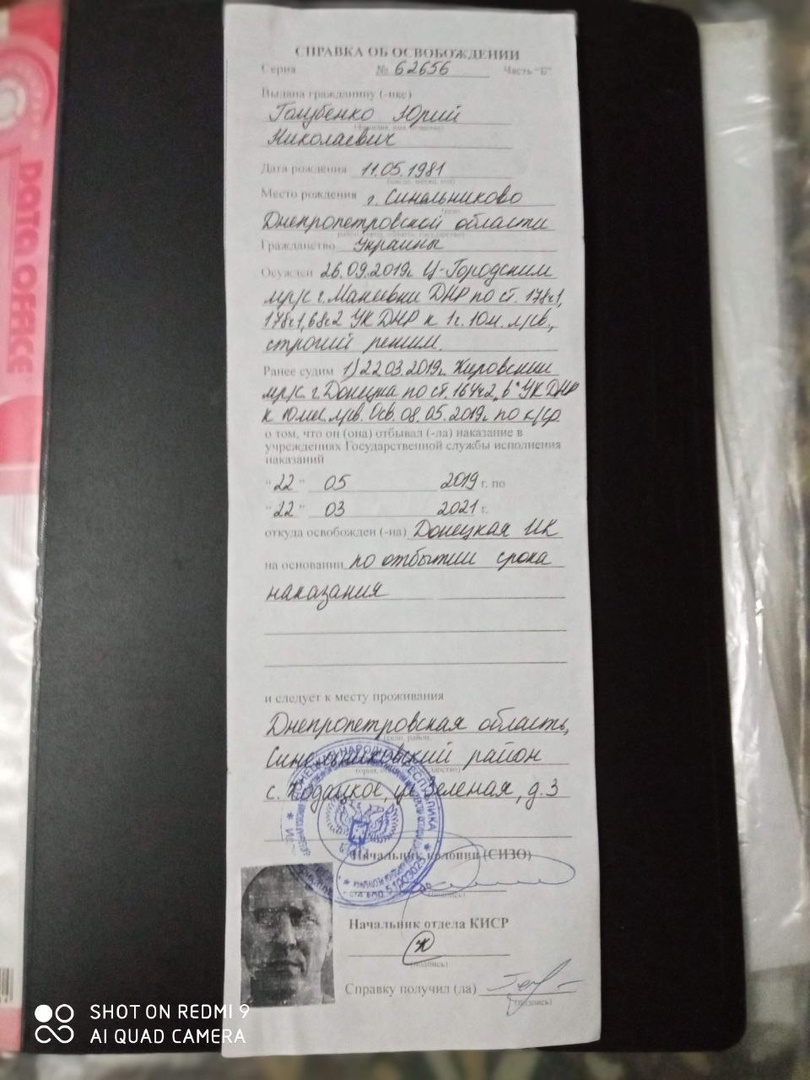 СПРАВКА ОБ ОСВОБОЖДЕНИИ
Серия № 62656 Часть "Б"
Выдана гражданину (-нке)
Голубенко Юрий
Николаевич
Дата рождения 11.05.1981
Место рождения г. Синельниково
Днепропетровской области
Гражданство Украины
Осужден 26.09.2019г. Ц-Городским
мр/с г. Макеевки ДНР по ст. 178ч1,
175ч1, 68ч2 УК ДНР к 1г. 10м. л/св,
строгий режим.
Ранее судим 1) 22.03.2019г. Кировским
мр/с. г. Донецка по ст. 164ч2 "в" УК ДНР
к 10мес. л/св. Осв. 08.05.2019г. по к/ср
о том, что он (она) отбывал (-ла) наказание в
учреждениях Государственной службы исполнения
наказаний
"22" 05 2019 г. по
"22" 03 2021 г.
откуда освобожден (-на) Донецкая ИК
на основании по отбытии срока
наказания
и следует к месту проживания
Днепропетровская область,
Синельниковский район
с. Кодацкое, ул Зеленая, д. 3
Начальник колонии (СИЗО)
(подпись)
Начальник отдела КИСР
(подпись)
Справку получил (ла)
(подпись)
DATA OFFICE
SHOT ON REDMI 9
AI QUAD CAMERA